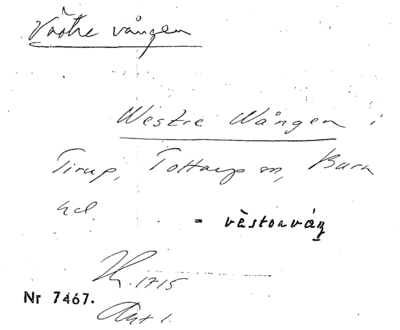 Västre vången
Westre Wången i
Tirup, Tottarp sn, Bara
hd.
= vèstərváŋ
1715
Nr 7467. Akt 1.